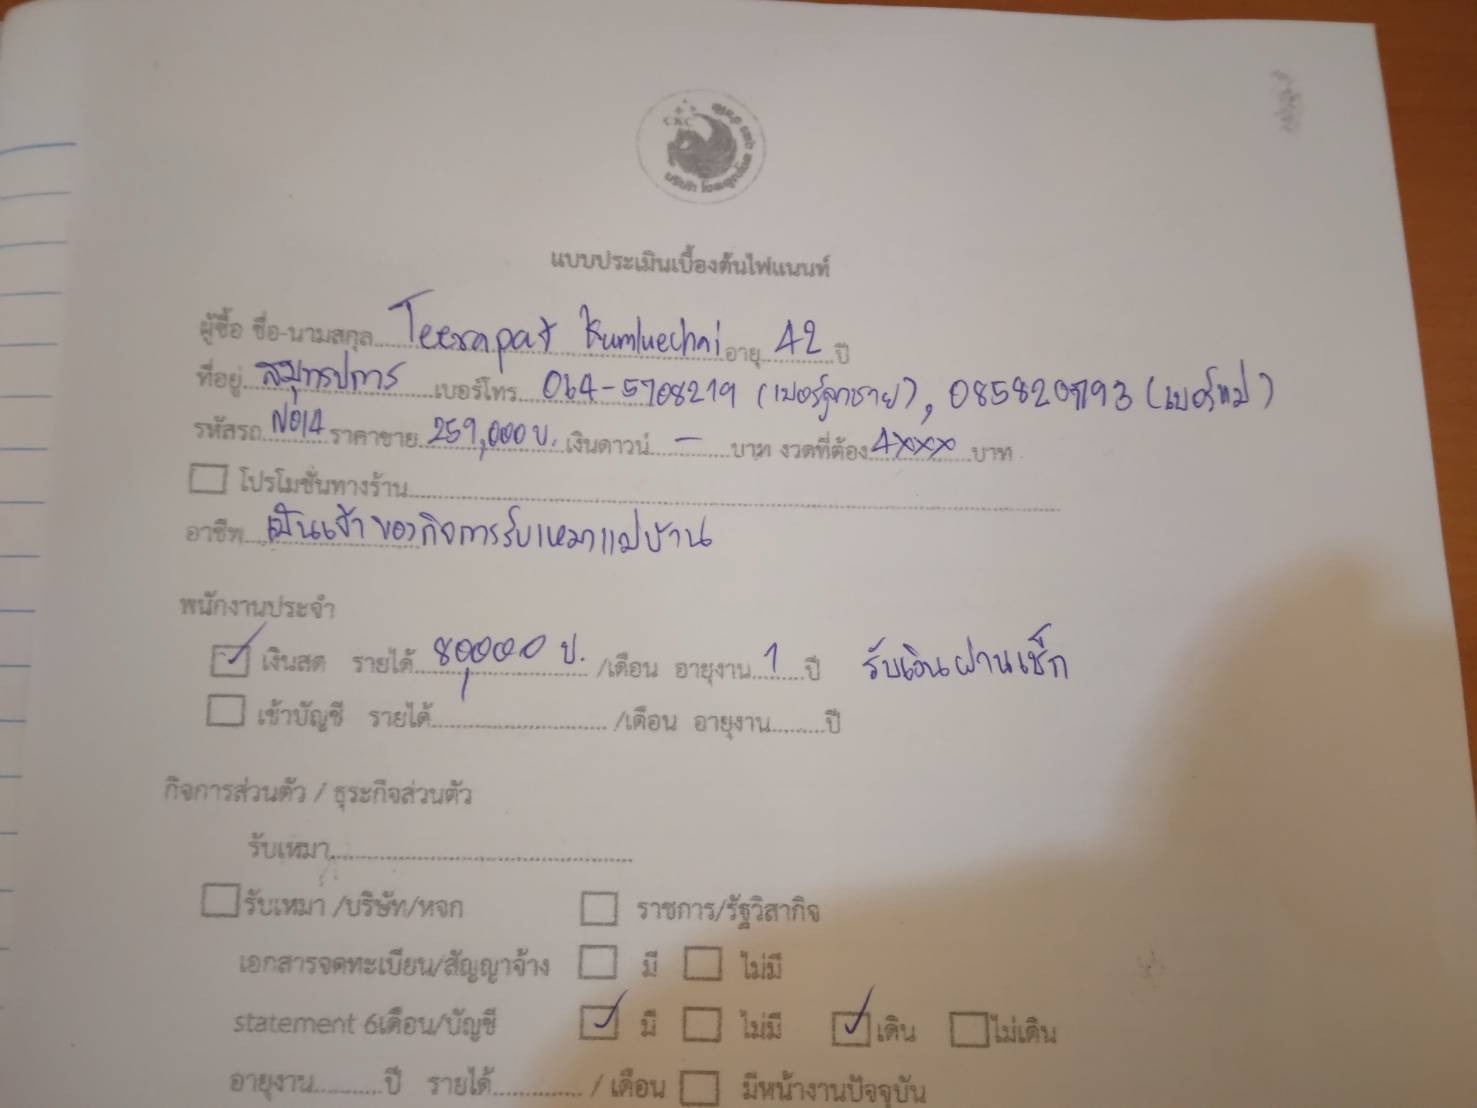 CKC
แบบประเมินเบื้องต้นไฟแนนท์
ผู้ซื้อ ชื่อ-นามสกุล Teerapat Kumluechai อายุ 42 ปี
ที่อยู่ สมุทรปการ เบอร์โทร 064-5708219 (เบอร์ลูกชาย), 0858209793 (เบอร์แม่)
รหัสรถ N014 ราคาขาย 259,000 บ. เงินดาวน์ - บาท งวดที่ต้อง 4xxx บาท
โปรโมชั่นทางร้าน
อาชีพ เป็นเจ้าของกิจการรับเหมาแม่บ้าน
พนักงานประจำ
เงินสด รายได้ 80,000 บ. /เดือน อายุงาน 1 ปี รับเงินผ่านเช็ก
เข้าบัญชี รายได้ /เดือน อายุงาน ปี
กิจการส่วนตัว / ธุระกิจส่วนตัว
รับเหมา
รับเหมา /บริษัท/หจก ราชการ/รัฐวิสากิจ
เอกสารจดทะเบียน/สัญญาจ้าง มี ไม่มี
statement 6เดือน/บัญชี มี ไม่มี เดิน ไม่เดิน
อายุงาน ปี รายได้ / เดือน มีหน้างานปัจจุบัน